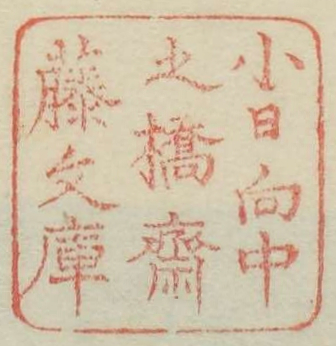 小日向中
之橋齋
藤文庫